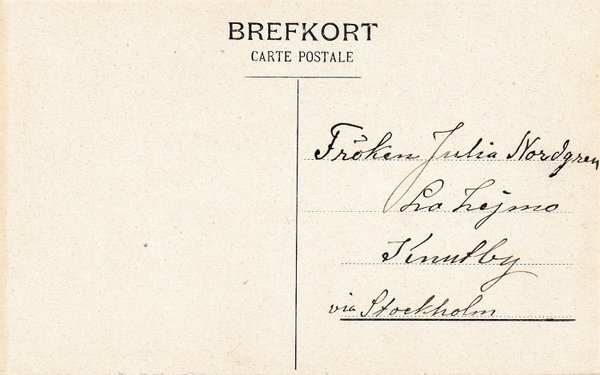 BREFKORT
CARTE POSTALE
Fröken Julia Nordgren
Knutby
via Stockholm